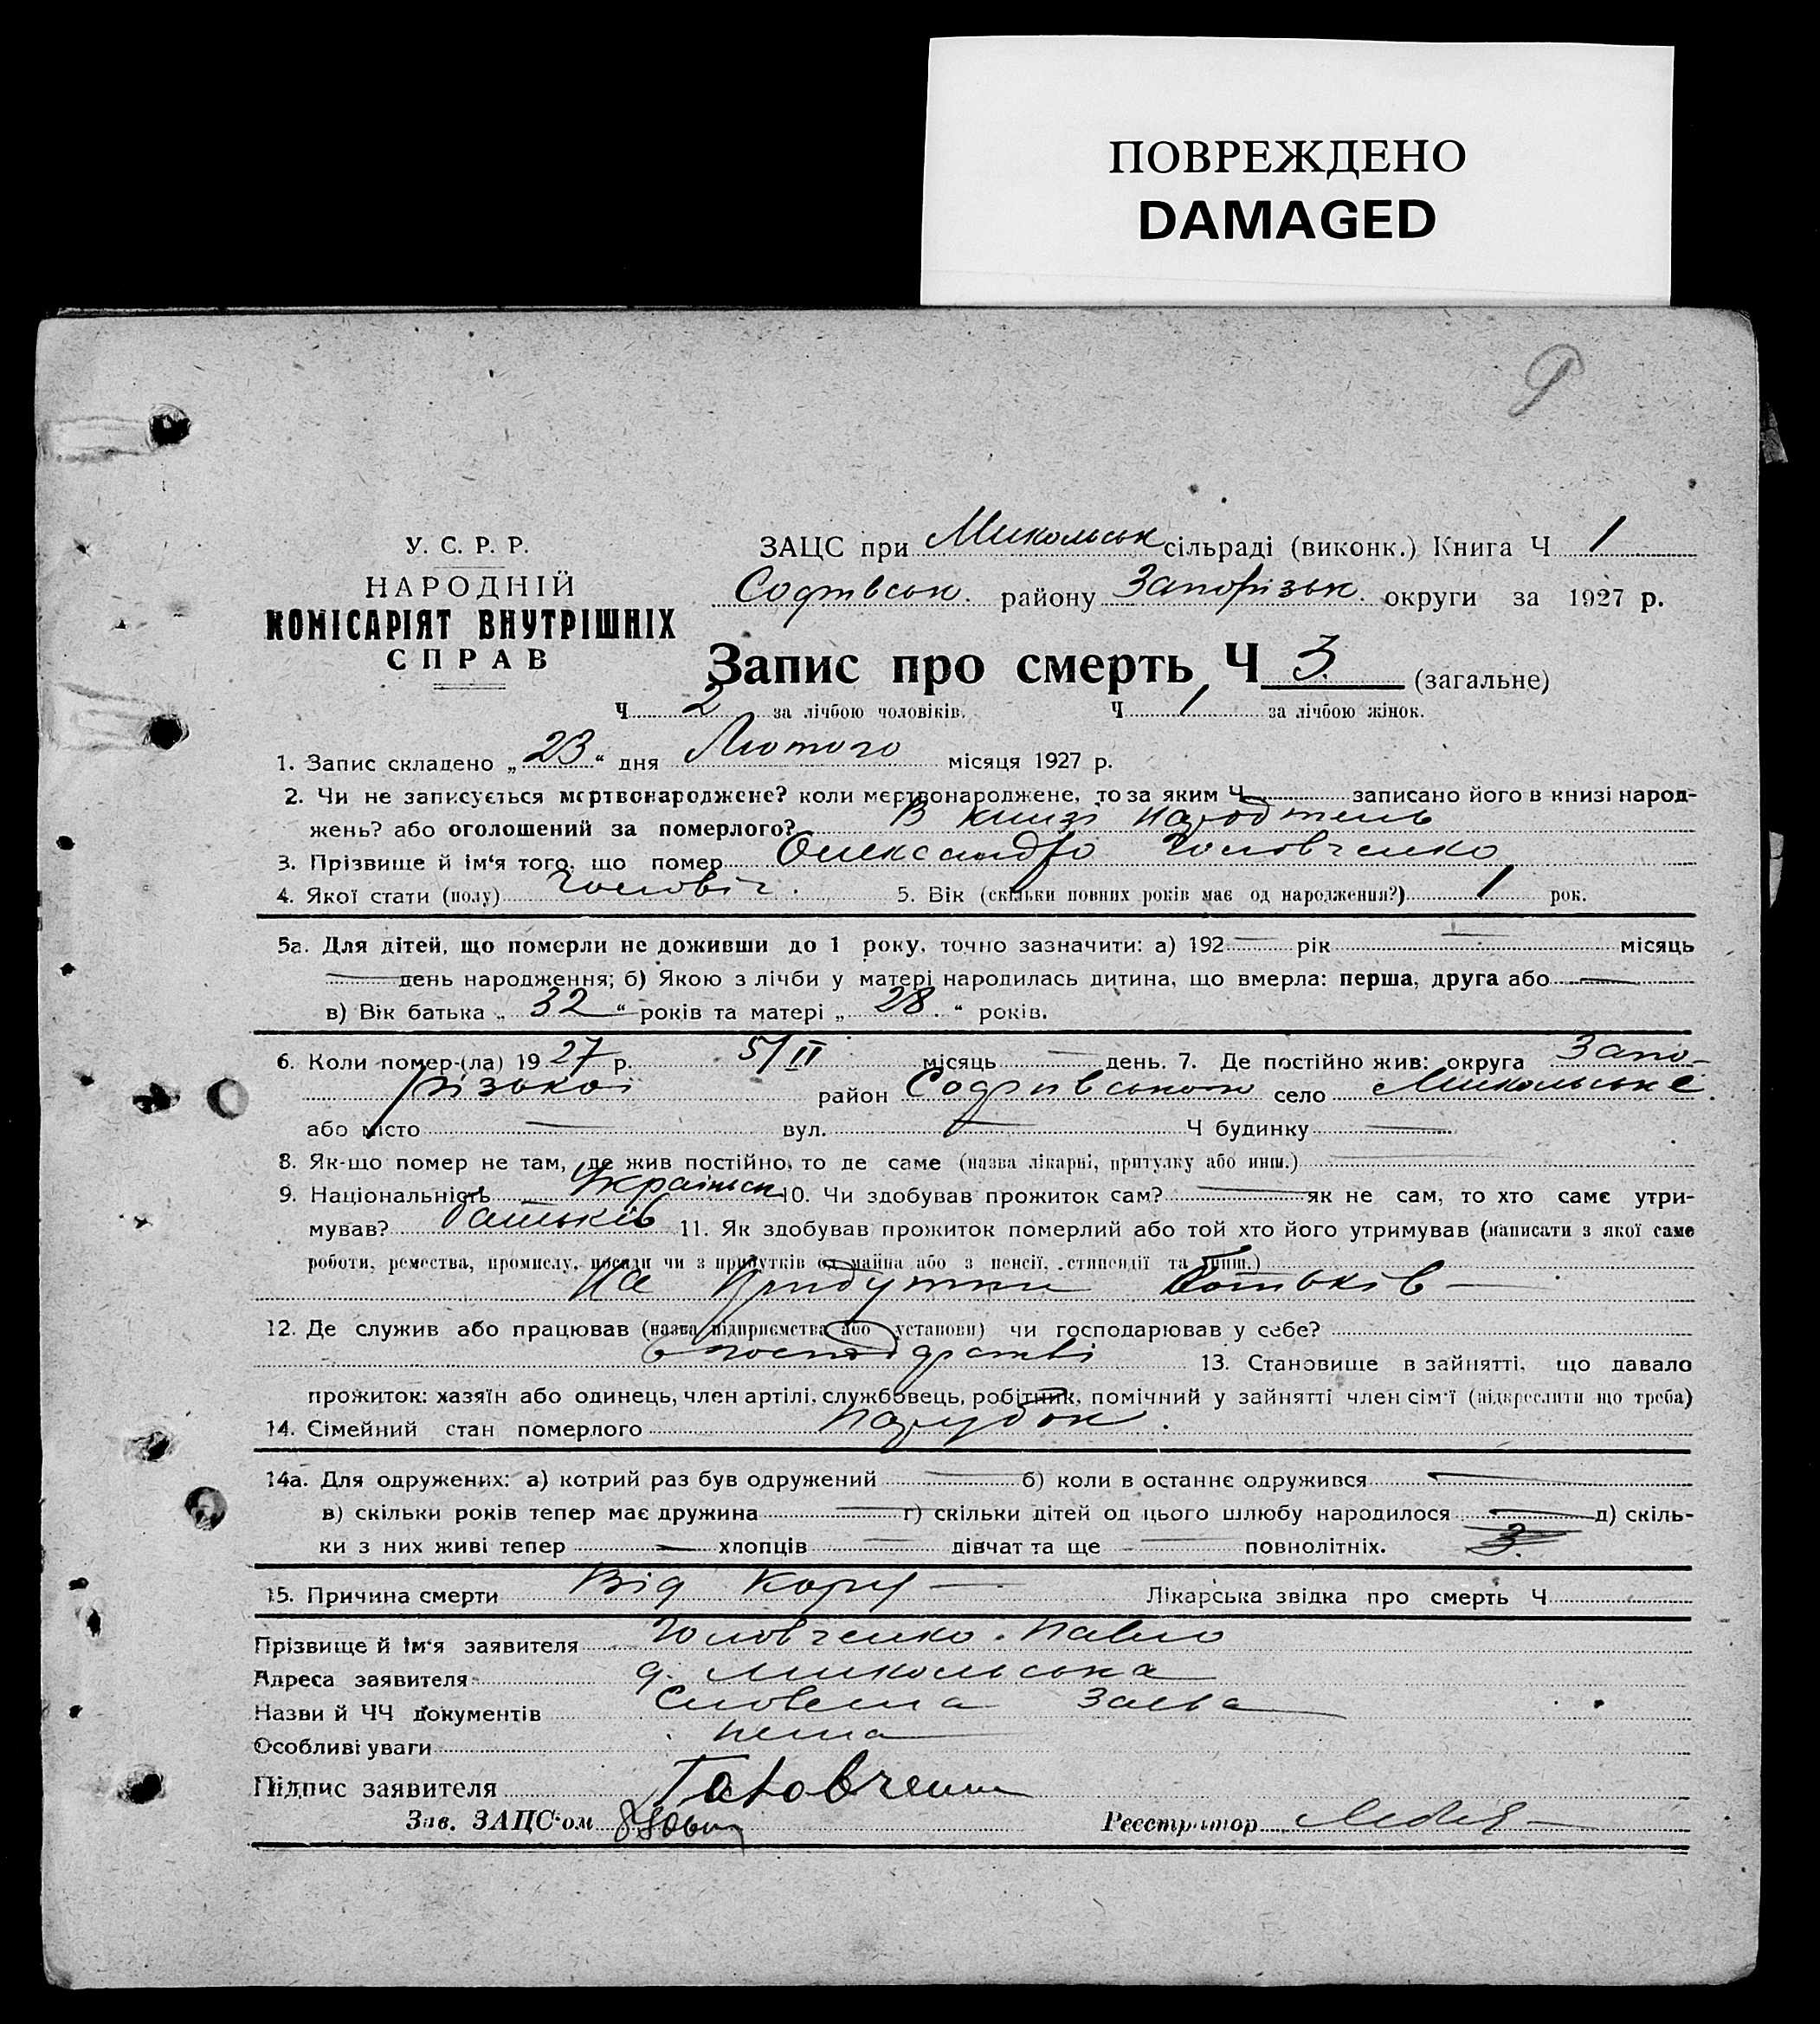 ПОВРЕЖДЕНО
DAMAGED
У. С. Р. Р.
НАРОДНІЙ
КОМІСАРІЯТ ВНУТРІШНІХ
СПРАВ
ЗАЦС при Микольськ сільраді (виконк.) Книга Ч 1
Софиівськ. району Запорізьк. округи за 1927 р.
Запис про смерть Ч 3. (загальне)
Ч 2 за лічбою чоловіків. Ч 1 за лічбою жінок.
1. Запис складено „23“ дня Лютого місяця 1927 р.
2. Чи не записується мертвонароджене? коли мертвонароджене, то за яким Ч записано його в книзі народ-
жень? або оголошений за померлого? В книзі
3. Прізвище й ім'я того, що помер Олександр Головченко
4. Якої стати (полу) Чоловіч. 5. Вік (скільки повних років має од народження?) 1 рок.
5а. Для дітей, що померли не доживши до 1 року, точно зазначити: а) 192— рік — місяць
— день народження; б) Якою з лічби у матері народилась дитина, що вмерла: перша, друга або —
в) Вік батька „32“ років та матері „28.“ років.
6. Коли помер-(ла) 1927 р. 5/II місяць — день. 7. Де постійно жив: округа Запо-
різької район Софиівського село Микольське.
або місто — вул. — Ч будинку —
8. Як-що помер не там, де жив постійно, то де саме (назва лікарні, притулку або инш.) —
9. Національність Українськ 10. Чи здобував прожиток сам? — як не сам, то хто саме утри-
мував? батьків 11. Як здобував прожиток померлий або той хто його утримував (написати з якої саме
роботи, ремества, промислу, посади чи з прибутків од майна або з пенсії, стипендії та инш.)
На прибутки батьків —
12. Де служив або працював (назва підприємства або установи) чи господарював у себе?
в господарстві 13. Становище в зайнятті, що давало
прожиток: хазяїн або одинець, член артілі, службовець, робітник, помічний у зайнятті член сім'ї (підкреслити що треба)
14. Сімейний стан померлого парубок.
14а. Для одружених: а) котрий раз був одружений — б) коли в останнє одружився —
в) скільки років тепер має дружина — г) скільки дітей од цього шлюбу народилося — д) скіль-
ки з них живі тепер — хлопців — дівчат та ще — повнолітніх. 3.
15. Причина смерти Від кору — Лікарська звідка про смерть Ч
Прізвище й ім'я заявителя Головченко. Павло
Адреса заявителя д. Микольська
Назви й ЧЧ документів Словесна заява
Особливі уваги нема
Підпис заявителя Головченко
Зав. ЗАЦС'ом
Реєстратор